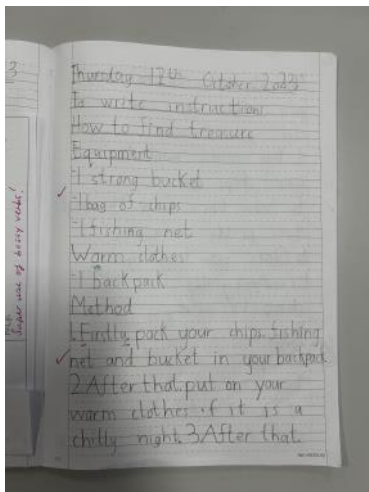 3
Super use of bossy verbs!
Thursday 12th October 2023
To write instructions
How to find treasure
Equipment
-1 strong bucket
-1 bag of chips
-1 fishing net
Warm clothes
-1 backpack
Method
1.Firstly, pack your chips, fishing
net and bucket in your backpack
2.After that, put on your
warm clothes if it is a
chilly night. 3.After that,